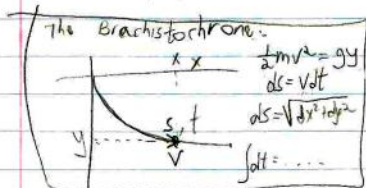 The Brachistochrone.
x x
½mv² = gy
ds = Vdt
ds = √dx²+dy²
S, t
y
V
∫dt = ....